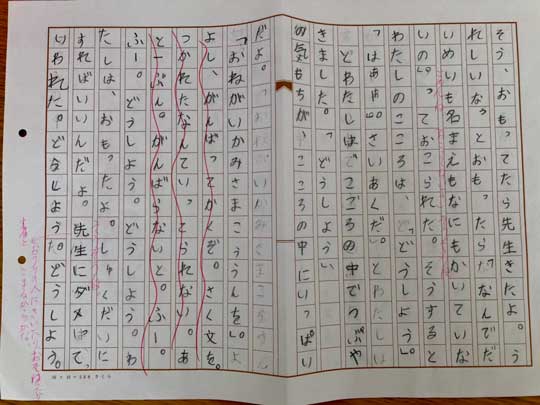 そう、おもってたら先生きたよ。う
れしいな。とおもったら「なんでだ
いめいも名まえもなにもかいていな
いの」っておこられた。そうすると
わたしのこころは、「どうしよう」。
「はぁぁ。さいあくだ」。とわたしは
どわたしはこころの中でつぶや
きました。「どうしよう」
の気もちが、こころの中にいっぱい
だよ。
「おねがいかみさまこううんを」。よ
よし、がんばってかくぞ。さく文を。
つかれたなんていってられない。あ
と一ぷん。がんばらないと。ふー。
ふー。どうしよう。どうしよう。わ
たしは、おもったよ。しゅくだいに
すればいいんだよ。先生にダメって
いわれた。どうしよう。どうしよう。